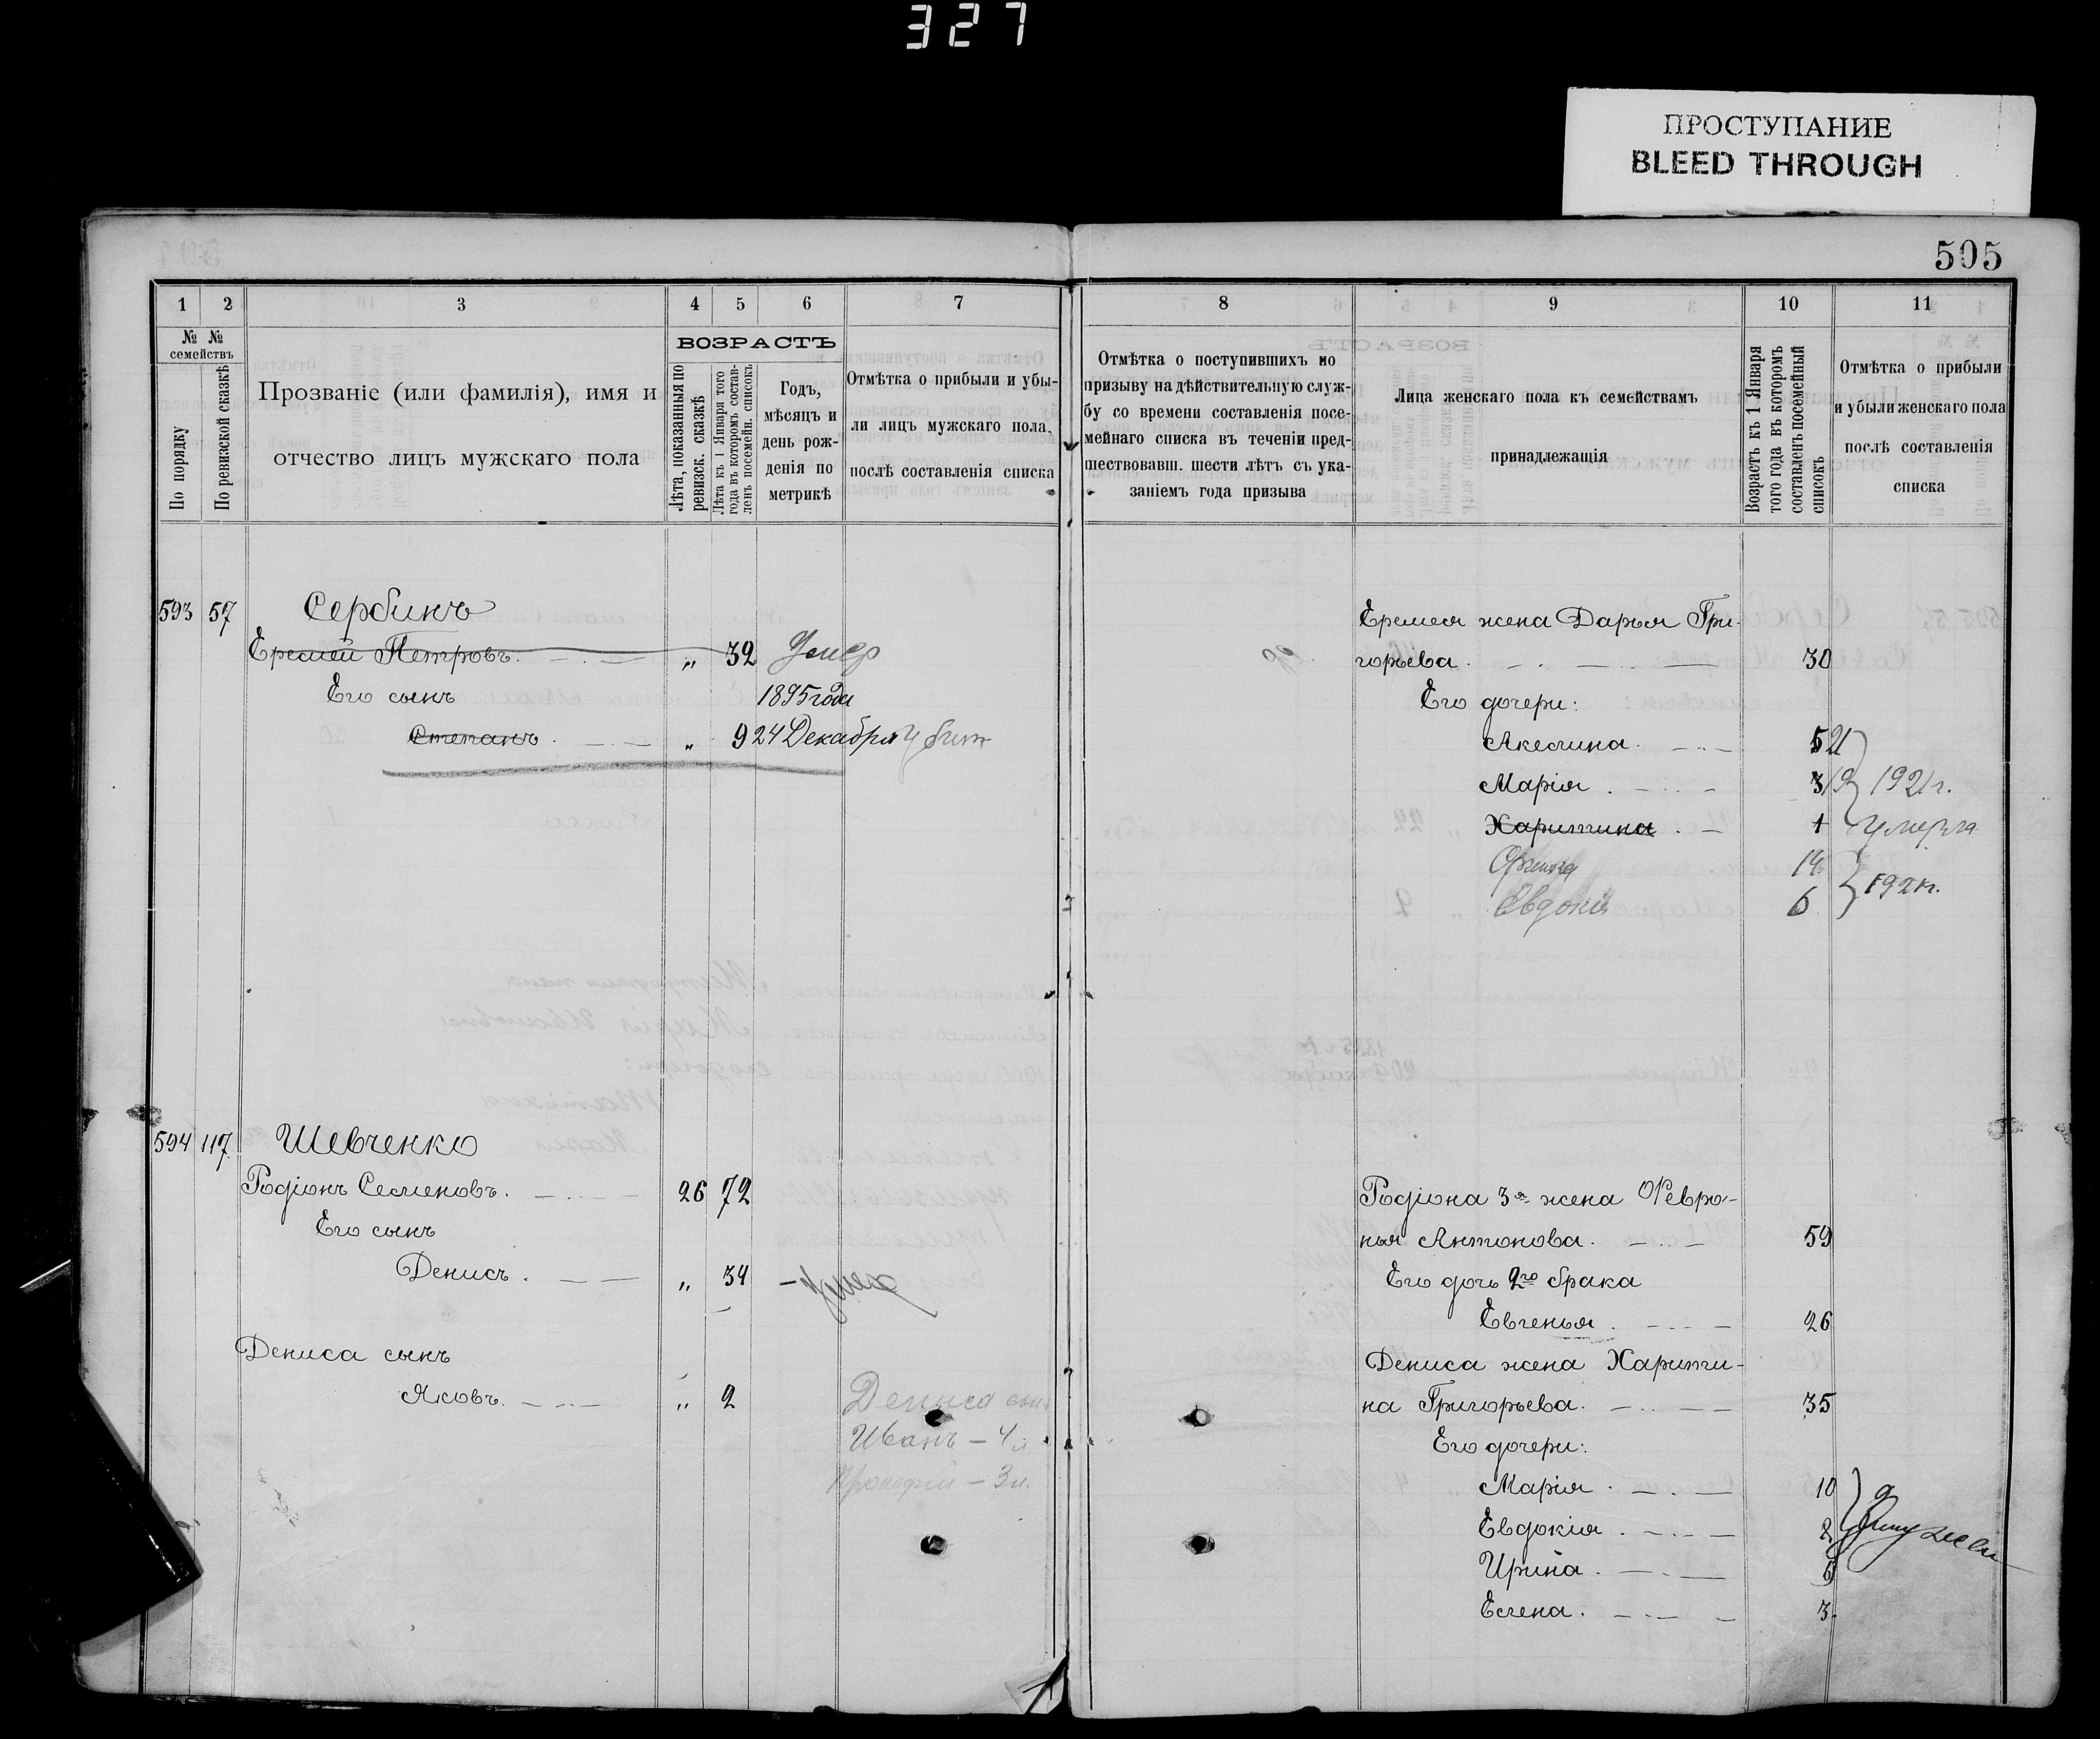 327
ПРОСТУПАНИЕ
BLEED THROUGH
505
1 2 3 4 5 6 7
№ № семействъ
По порядку
По ревизской сказкѣ
Прозваніе (или фамилія), имя и
отчество лицъ мужскаго пола
ВОЗРАСТЪ
Лѣта, показанныя по
ревизск. сказкѣ
Лѣта къ 1 Января того
года въ которомъ состав-
ленъ посемейн. списокъ
Годъ,
мѣсяцъ и
день рож-
денія по
метрикѣ
Отмѣтка о прибыли и убы-
ли лицъ мужскаго пола,
послѣ составленія списка
593 57 Сербинъ
Еремей Петровъ. „ 32 Умер
Его сынъ 1895 года
Степанъ „ 9 24 Декабря Убит
594 117 Шевченко
Родіонъ Семеновъ. 26 72
Его сынъ
Денисъ. „ 34 – умер
Дениса сынъ
Яковъ. „ 2 Дениса сын
Иванъ – 4 л
Прокофій – 3 л.
8 9 10 11
Отмѣтка о поступившихъ по
призыву на дѣйствительную служ-
бу со времени составленія посе-
мейнаго списка въ теченіи пред-
шествовавш. шести лѣтъ съ ука-
заніемъ года призыва
Лица женскаго пола къ семействамъ
принадлежащія
Возрастъ къ 1 Января
того года въ которомъ
составленъ посемейный
списокъ
Отмѣтка о прибыли
и убыли женскаго пола
послѣ составленія
списка
Еремея жена Дарья Гри-
горьева. 30
Его дочери:
Акелина. 5 21
Марія. 3 19 1921 г.
Харитина. 1 Умерла
14
Евдокія 6 1921 г.
Родіона 3я жена Февро-
нья Антонова. 59
Его дочь 2го брака
Евгенья. 26
Дениса жена Харити-
на Григорьева. 35
Его дочери:
Марія. 10
Евдокія. 2
Ирина. 6
Елена. 3